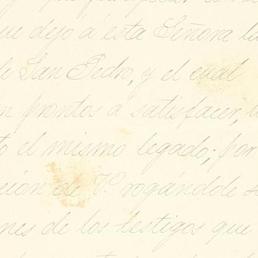 que dijo á esta Señora la
de San Pedro, y el cual
prontos a satisfacer,
to el mismo legado; por
cion de Vº rogándole s
nes de los testigos que